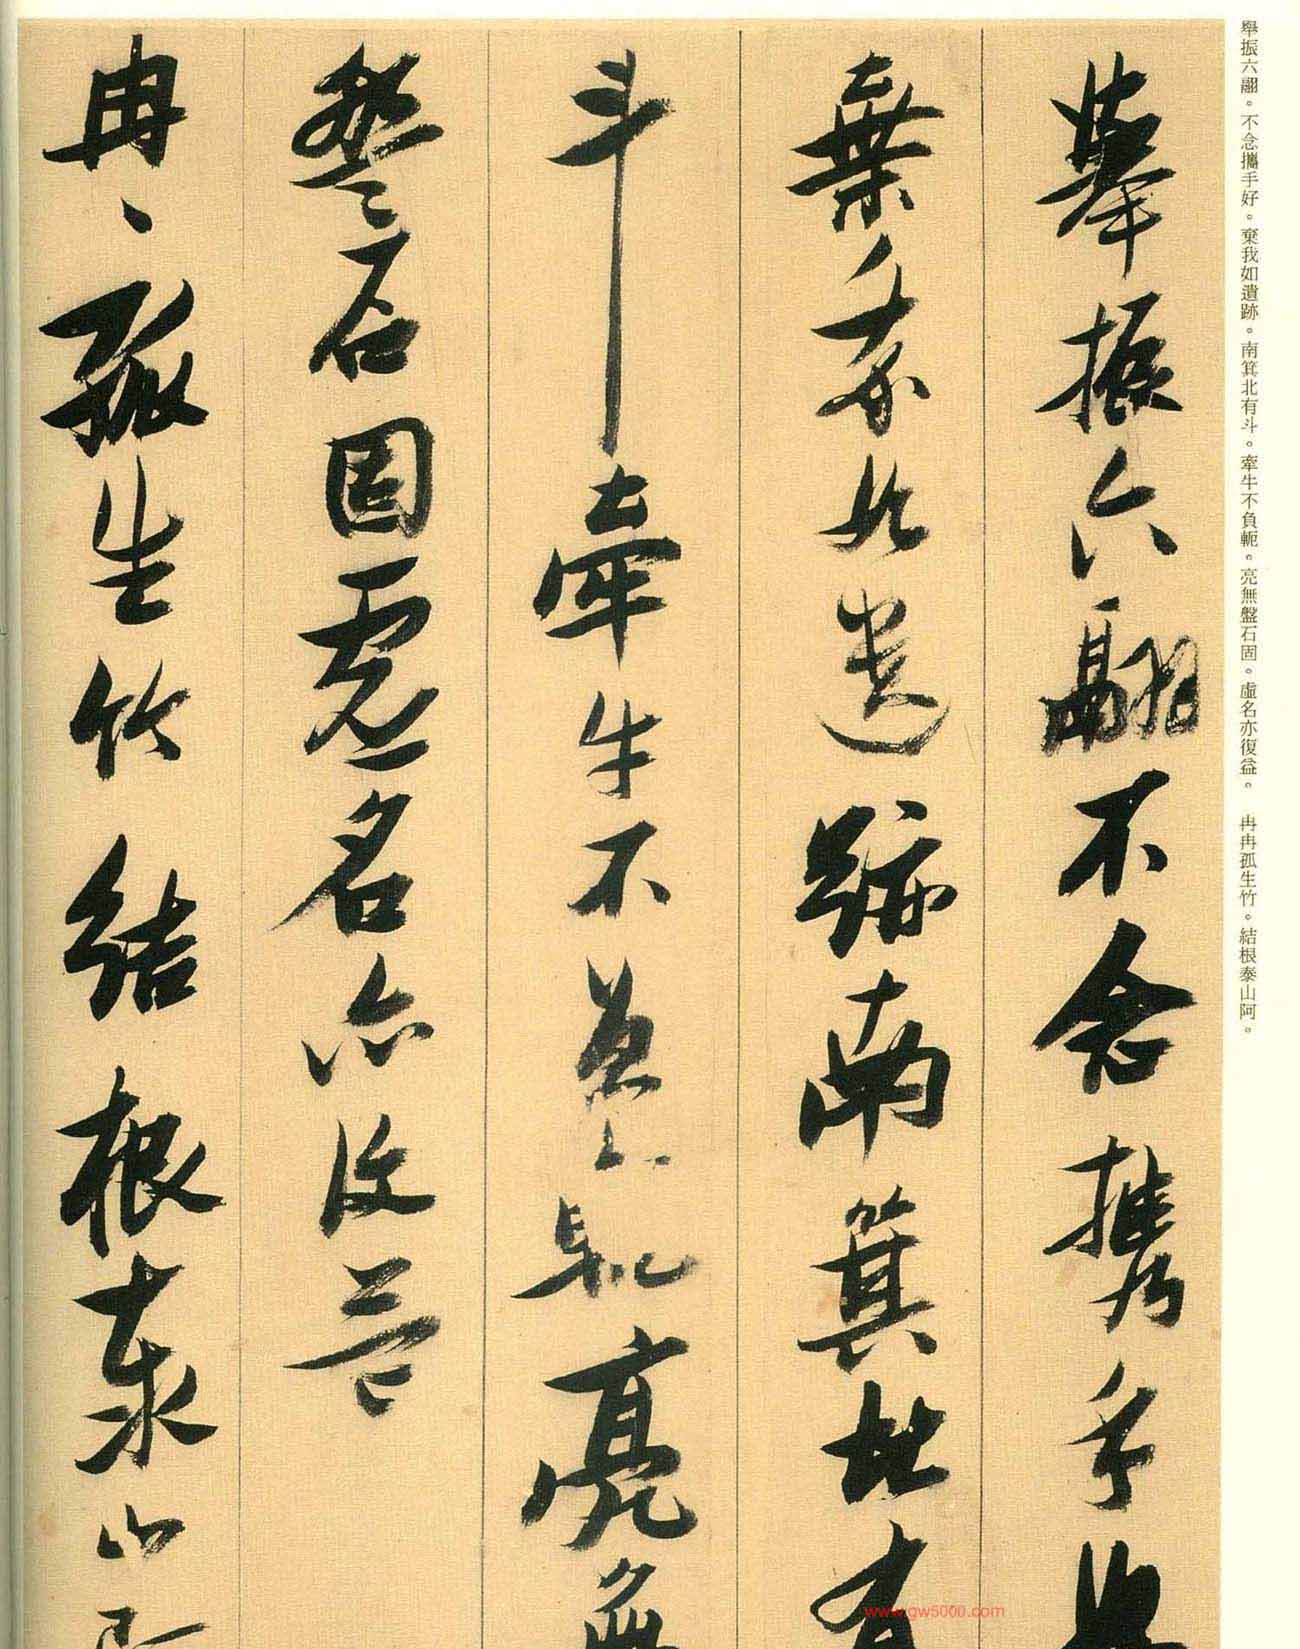 舉振六翮。不念攜手好。棄我如遺跡。南箕北有斗。牽牛不負軛。亮無盤石固。虛名亦復益。 冉冉孤生竹。結根泰山阿。
舉振六翮不念攜手好
棄我如遺跡南箕北有
斗牽牛不負軛亮無
盤石固虛名亦復益
冉〻孤生竹結根泰山阿
www.gw5000.com